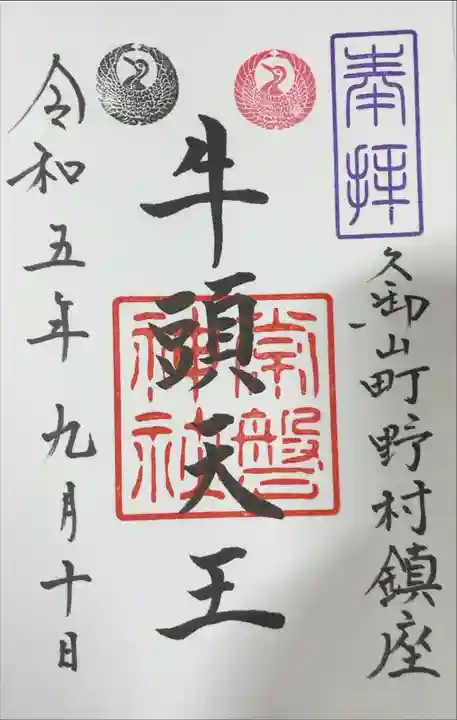 奉拝
久御山町野村鎮座
牛頭天王
常磐神社
令和五年九月十日